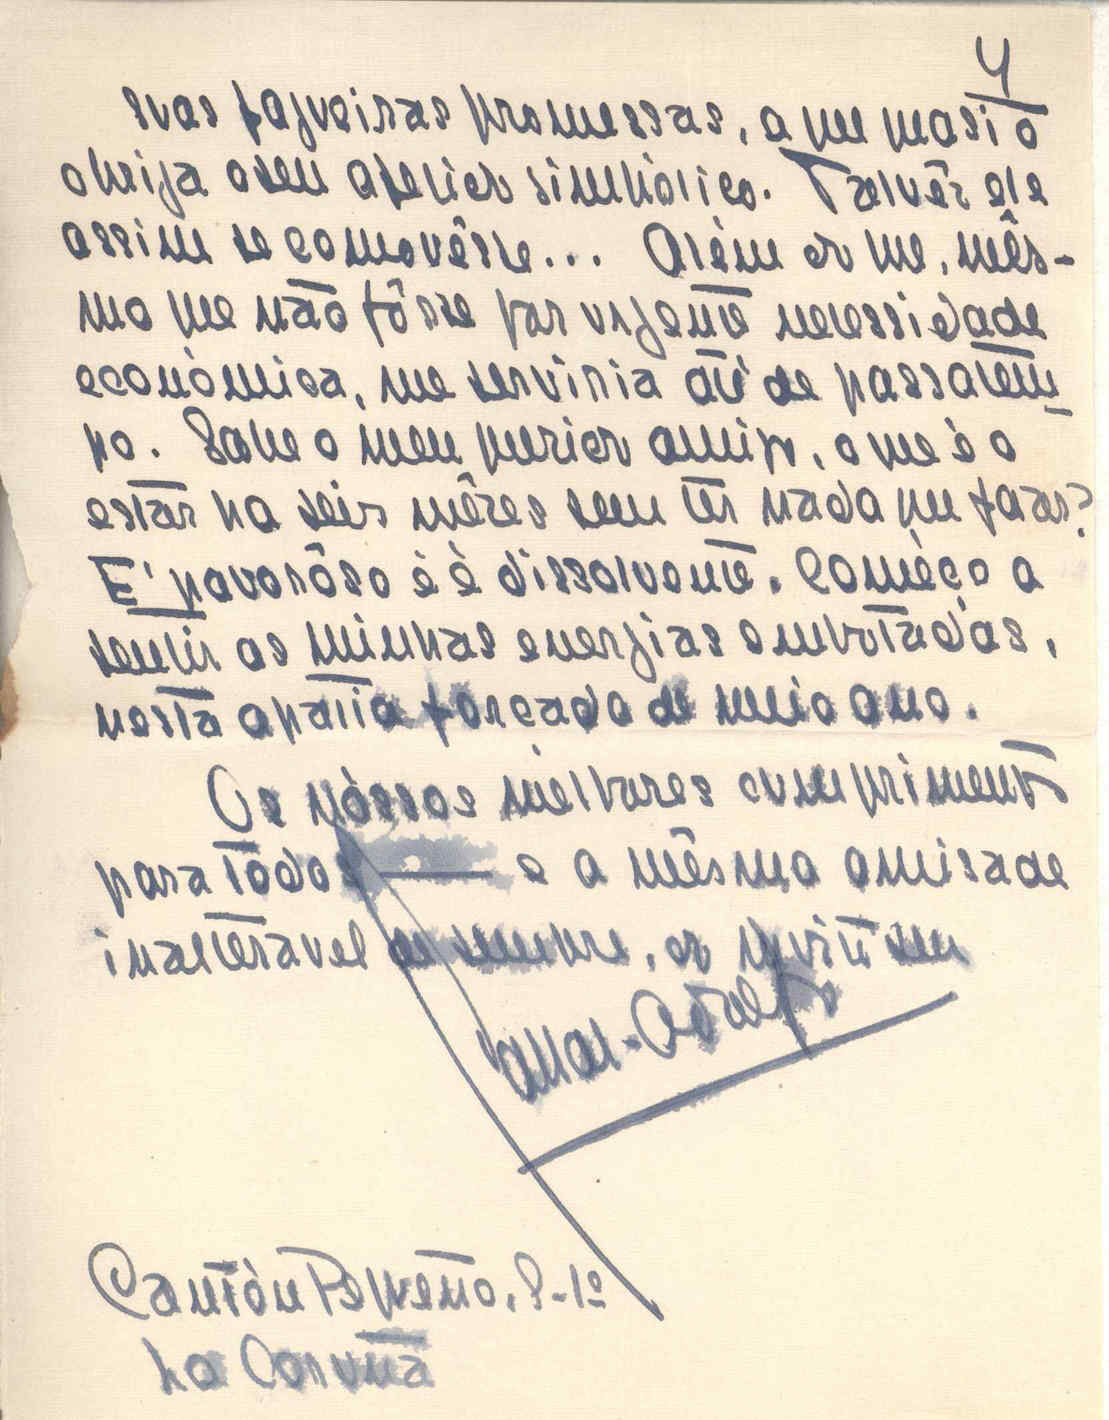 4
suas fagueiras promessas, a que
obriga o seu atelier simbólico. Talvêz ele
assim se comovêsse... Além do que, mês-
mo que não fôsse por urgente necessidade
económica, me serviria até de passatem-
po. Sabe o meu querido amigo, o que é o
estar ha seis mêses sem ter nada que fazer?
E' pavorôso e é dissolvente. Comèço a
sentir as minhas energias embotadas,
nesta apatia forçada de meio ano.
Os nóssos melhores cumprimentos
para todos — e a mêsma amisade
inalteravel de sempre, do muito seu
Adolfo
Cantón Pequeño, 8-1º
La Coruña